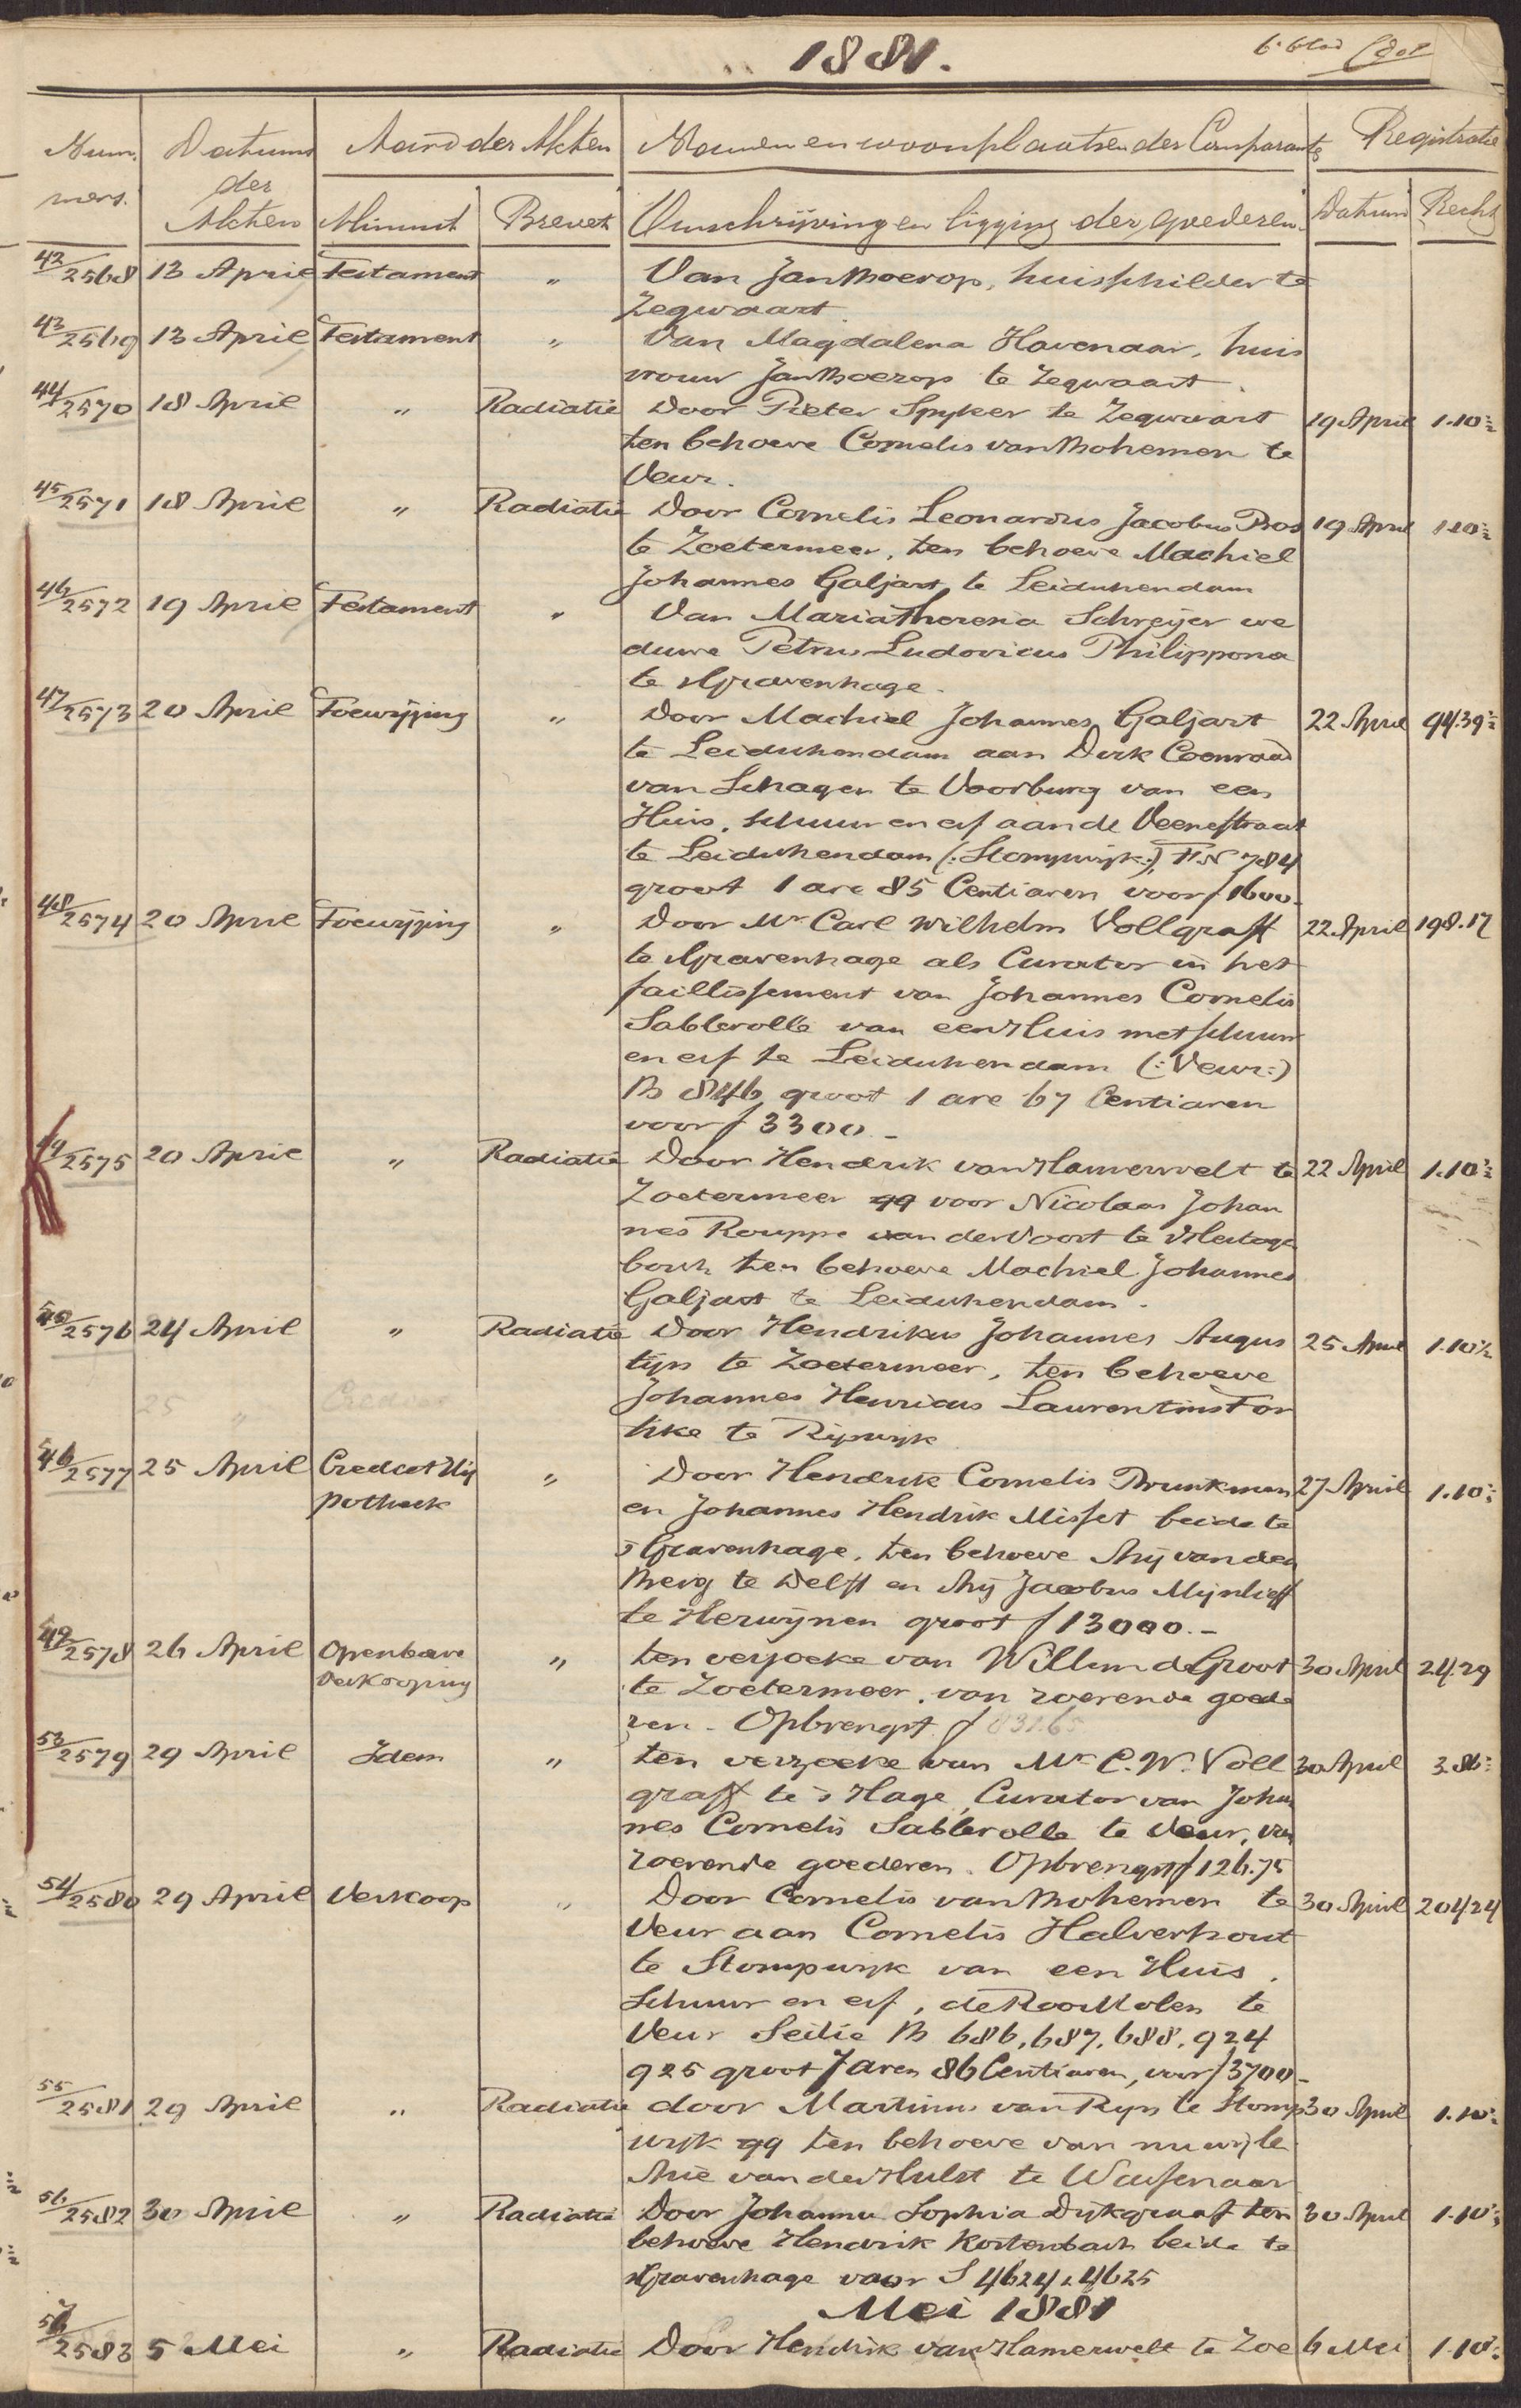 1881.
6e blad
Num, Datums Aard der Akten Namen en woonplaatsen der Comparante Registratie
mers. der
Akten Minuut Brevet Omschrijving en ligging der goederen. Datum Recht
42/2568 13 April Testament " Van Jan Boerop, huisschilder te
Zegwaart.
43/2569 13 April Testament " Van Magdalena Havenaar, huis
vrouw Jan Boerop te Zegwaart.
44/2570 18 April " Radiatie Door Pieter Spyker te Zegwaart 19 April 1.10½
ten behoeve Cornelis van Bohemen te
Veur.
45/2571 18 April " Radiatie Door Cornelis Leonardus Jacobus Bos 19 April 1.10½
te Zoetermeer, ten behoeve Machiel
Johannes Galjart te Leidschendam
46/2572 19 April Testament " Van Maria Theresia Schreijer we
duwe Petrus Ludovicus Philippona
te sGravenhage.
47/2573 20 April Toewijzing " Door Machiel Johannes Galjart 22 April 94.39½
te Leidschendam aan Dirk Coenraad
van Schagen te Voorburg van een
Huis, schuur en erf aan de Veenestraat
te Leidschendam (:Stompwijk:) F. N 784
groot 1 are 85 Centiaren voor f 1600.
48/2574 20 April Toewijzing " Door Mr Carl Wilhelm Vollgraff 22 April 198.17
te sGravenhage als Curator in het
faillissement van Johannes Cornelis
Sablerolle van een Huis met schuur
en erf te Leidschendam (:Veur:)
B 846 groot 1 are 67 Centiaren
voor f 3300.-
49/2575 20 April " Radiatie Door Hendrik van Hamerwelt te 22 April 1.10½
Zoetermeer qq voor Nicolaas Johan
nes Rouppe van der Voort te sHertogen
bosch ten behoeve Machiel Johannes
Galjart te Leidschendam.
50/2576 24 April " Radiatie Door Hendrikus Johannes Augus 25 April 1.10½
tijn te Zoetermeer, ten behoeve
Johannes Henricus Laurentius For
tike te Rijswijk
2577 25 April Crediet Hij " Door Hendrik Cornelis Brunkman 27 April 1.10½
potheek en Johannes Hendrik Misset beide te
s Gravenhage, ten behoeve Arij van den
Berg te Delft en Arij Jacobus Mijnlieff
te Herwijnen groot f 13000.-
2578 26 April Openbare " ten verzoeke van Willem de Groot 30 April 24.29
Verkooping te Zoetermeer, van roerende goede
ren. Opbrengst f 831.65
53/2579 29 April Idem " ten verzoeke van Mr C. W. Voll 30 April 3.86½
graff te s Hage, Curator van Johan
nes Cornelis Sablerolle te Veur, van
roerende goederen. Opbrengst f 126.75
54/2580 29 April Verkoop " Door Cornelis van Bohemen te 30 April 204.24
Veur aan Cornelis Halverhout
te Stompwijk van een Huis,
Schuur en erf, de Roo Molen te
Veur Sectie B 686, 687, 688, 924
925 groot 7 aren 86 Centiaren, voor f 3700-
55/2581 29 April " Radiatie door Martinus van Rijn te Stomp 30 April 1.10½
wijk qq ten behoeve van nu wijle
Arie van der Hulst te Wassenaar
56/2582 30 April " Radiatie Door Johanna Sophia Dijkgraaf ten 30 April 1.10½
behoeve Hendrik Kortenbach beide te
sGravenhage voor S 4624, 4625
Mei 1881
57/2583 5 Mei " Radiatie Door Hendrik van Hamerwelt te Zoe 6 Mei 1.10½